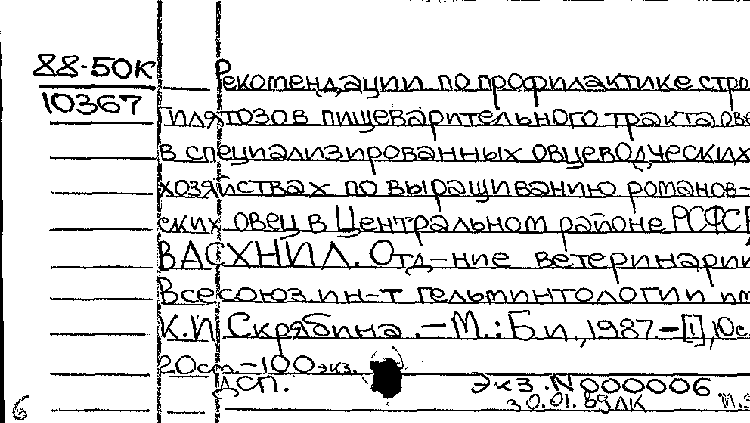 88-50К
10367
Рекомендации по профилактике стро
гилятозов пищеварительного тракта ове
в специализированных овцеводческих
хозяйствах по выращиванию романов-
ских овец в Центральном районе РСФСР
ВАСХНИЛ. Отд-ние ветеринарии
Всесоюз. ин-т гельминтологии им
К.И. Скрябина. – М.: Б.и., 1987. – [1], 10с.
20см. – 100экз.
ДСП.
Экз. N 000006
30.01.89 ЛК
6